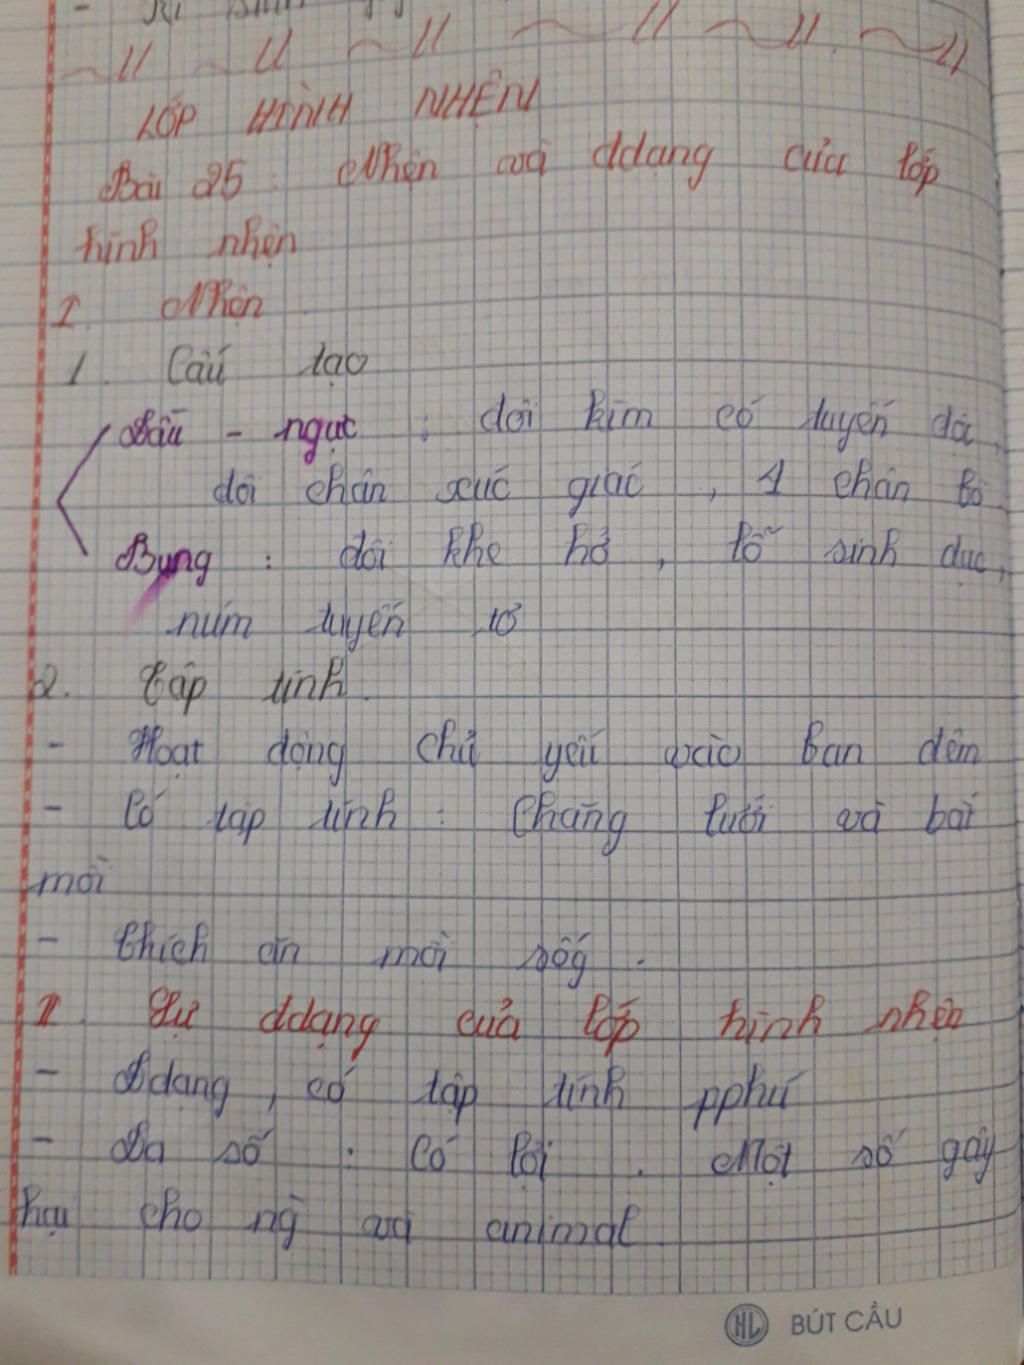 LỚP HÌNH NHỆN
Bài 25 : Nhện và đdạng của lớp
hình nhện
I. Nhện
1. Cấu tạo
Đầu - ngực : đôi kìm có tuyến độc,
đôi chân xúc giác, 4 chân bò
Bụng : đôi khe hở, lỗ sinh dục,
núm tuyến tơ
2. Tập tính
- Hoạt động chủ yếu vào ban đêm
- Có tập tính : Chăng lưới và bắt
mồi
- thích ăn mồi sốg.
II. Sự đdạng của lớp hình nhện
- Đdạng, có tập tính pphú
- Đa số : Có lợi. Một số gây
hại cho ng và animal
HL BÚT CẦU